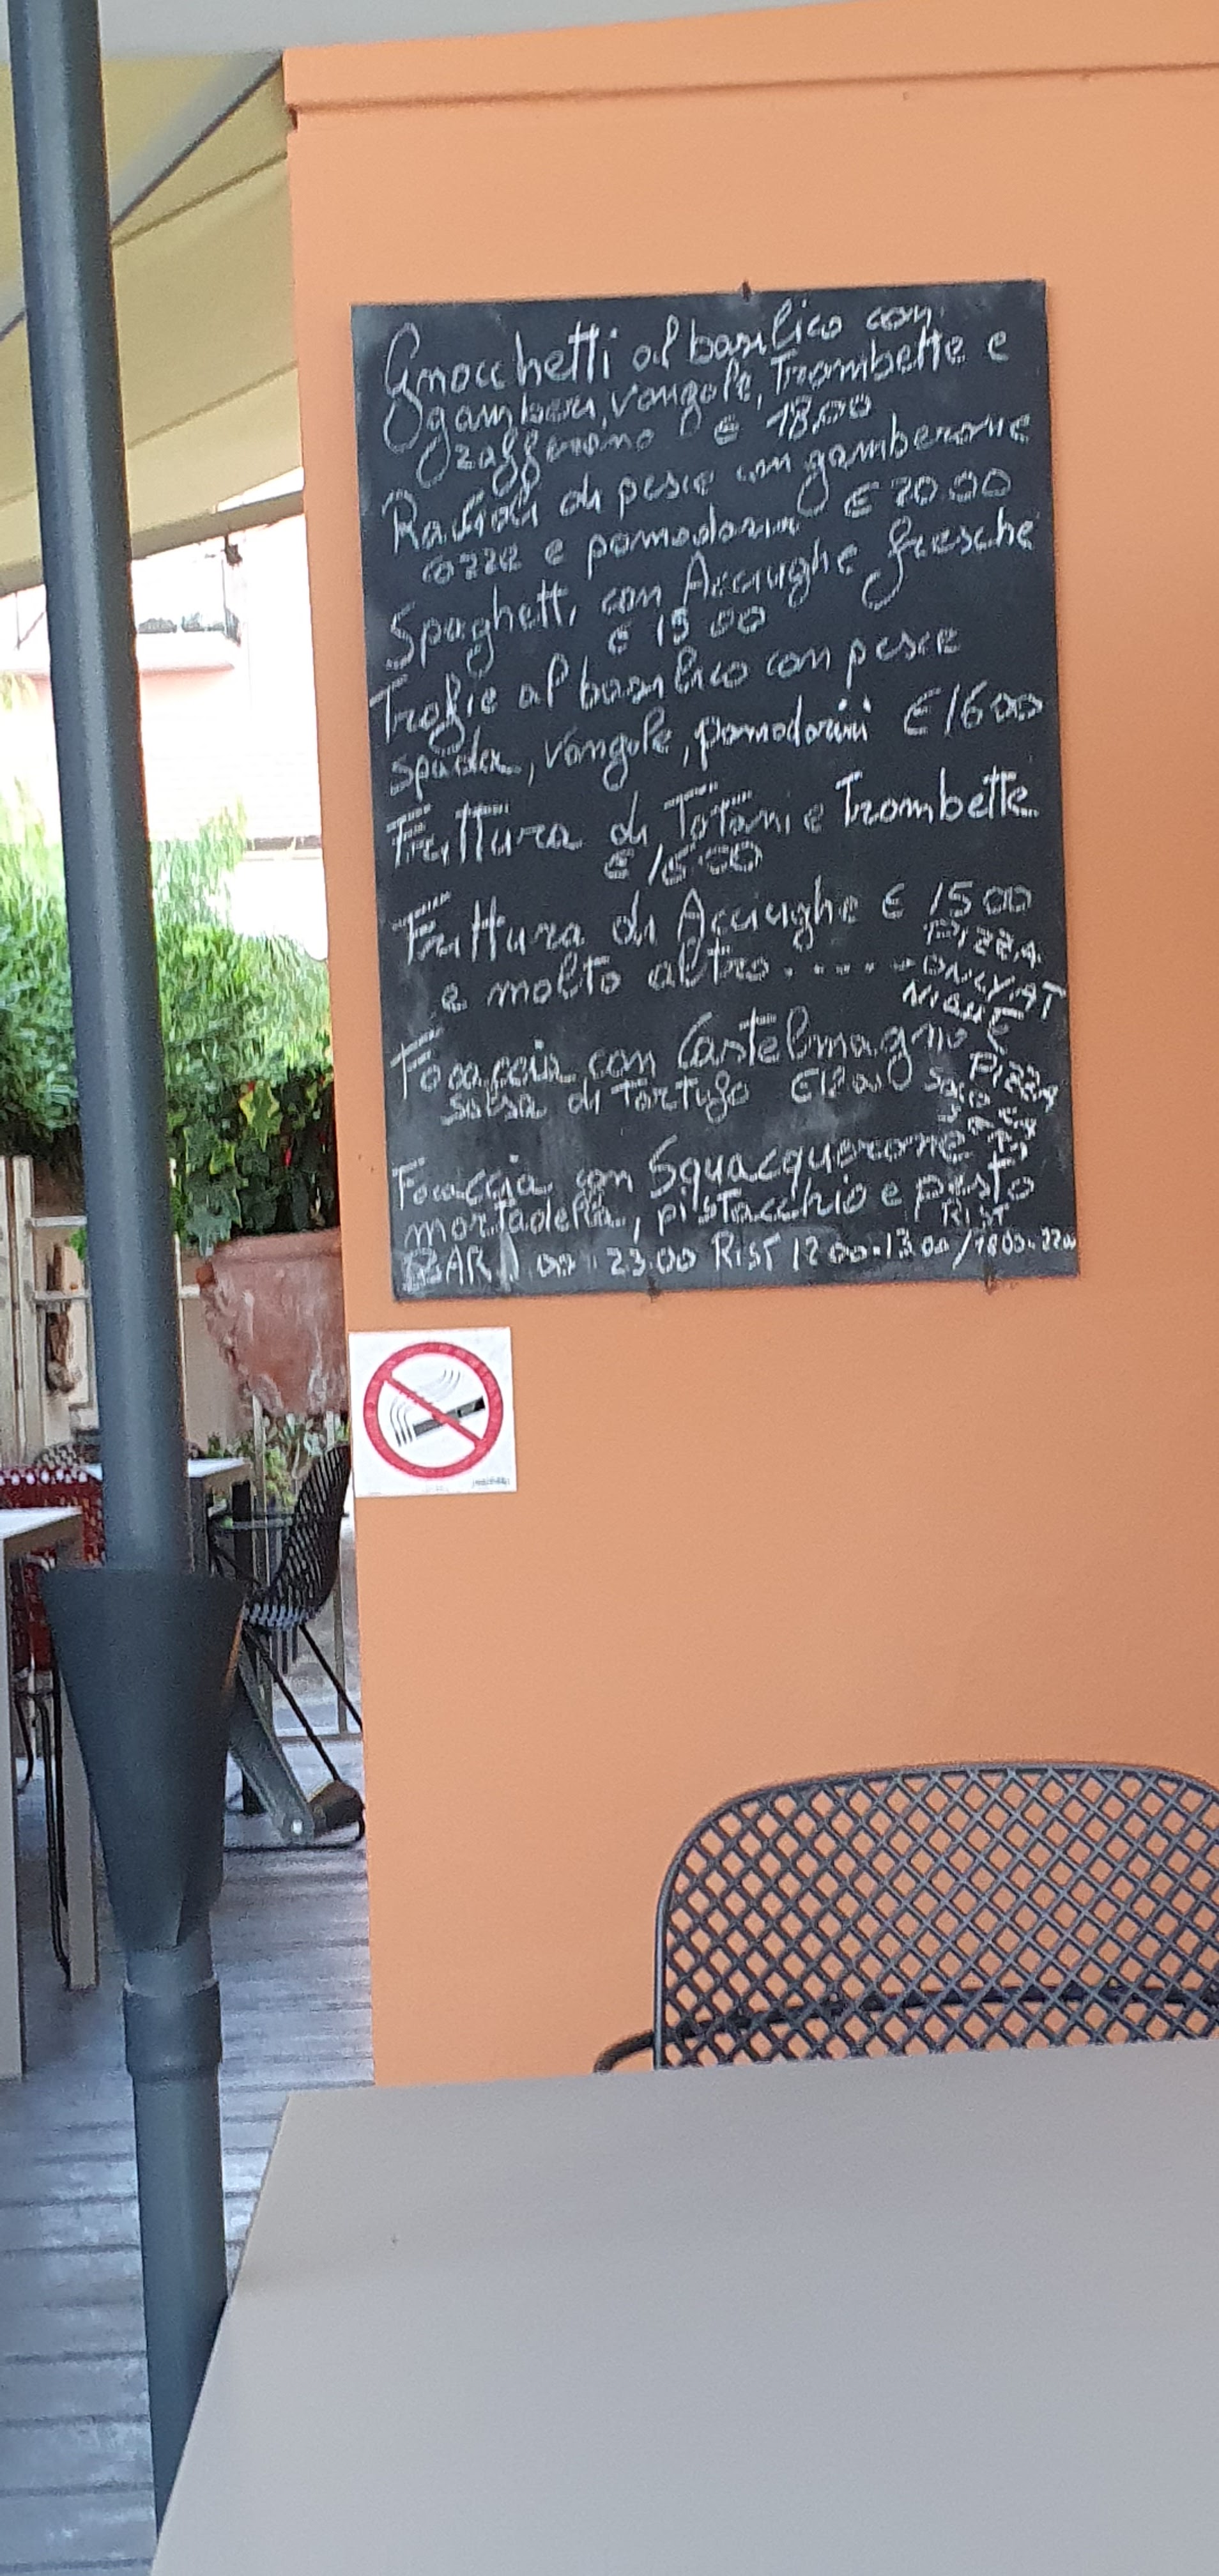 Gnocchetti al basilico con
gamberi, vongole, Trombette e
zafferano € 18.00
Ravioli di pesce con gamberone
cozze e pomodorini € 20.00
Spaghetti con Acciughe fresche
€ 15 00
Trofie al basilico con pesce
spada, vongole, pomodorini € 16 00
Frittura di Totani e Trombette
€ 16.00
Frittura di Acciughe € 15 00
e molto altro.......
PIZZA
ONLY AT
Focaccia con Castelmagno
salsa di Tartufo
PIZZA
Focaccia con Squacquerone
mortadella, pistacchio e pesto
RIST
BAR 23.00 RIST 12 00